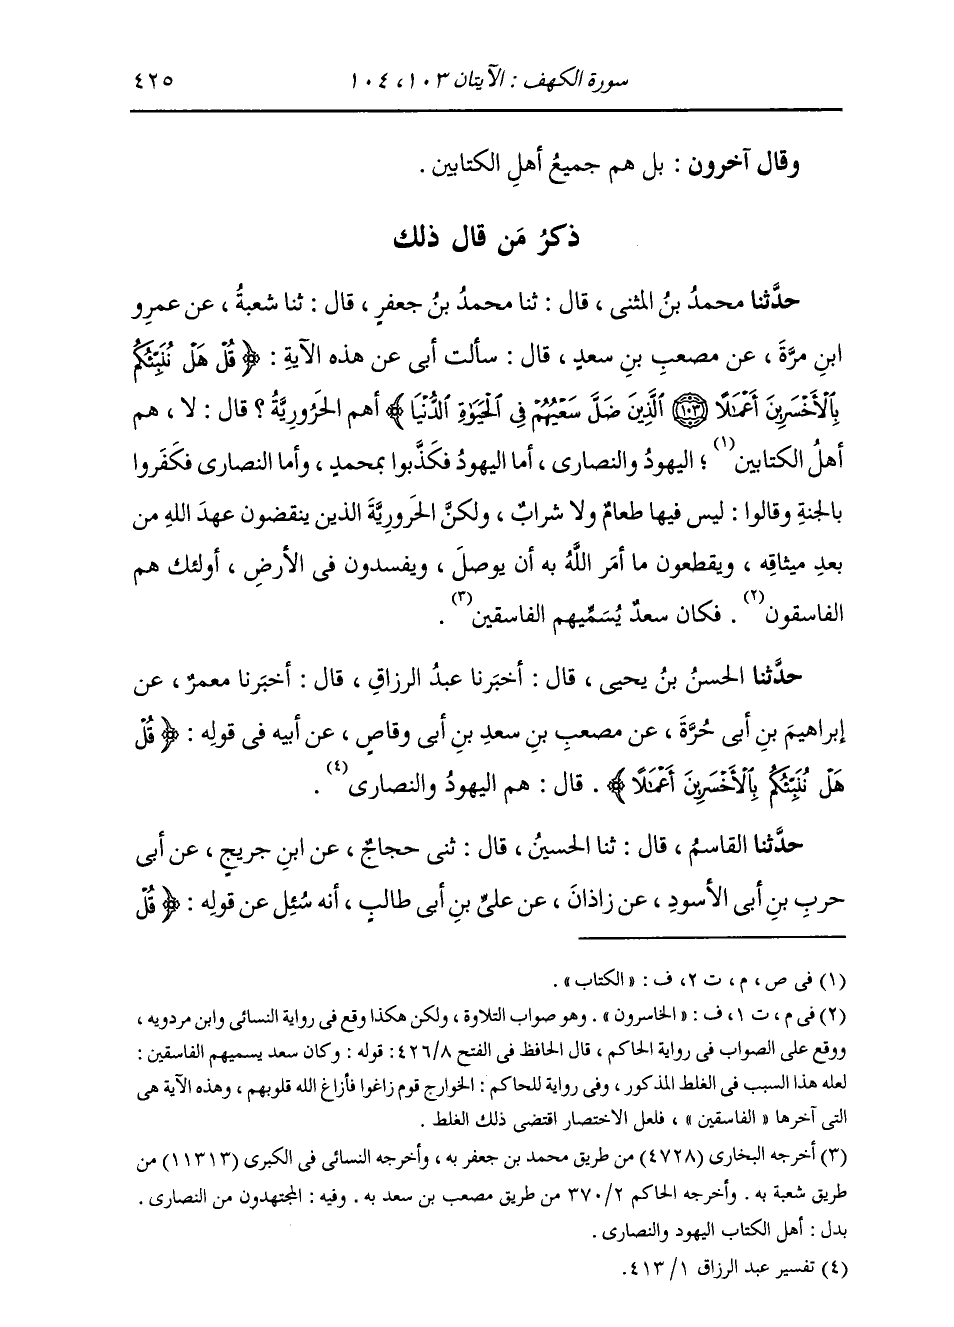 سورة الكهف : الآيتان ١٠٣، ١٠٤ ٤٢٥
وقال آخرون : بل هم جميعُ أهلِ الكتابين .
ذكرُ مَن قال ذلك
حدَّثنا محمدُ بنُ المثنى ، قال : ثنا محمدُ بنُ جعفرٍ ، قال : ثنا شعبةُ ، عن عمرِو
ابنِ مرَّةَ ، عن مصعبِ بنِ سعدٍ ، قال : سألت أبى عن هذه الآيةِ : ﴿ قُلْ هَلْ نُنَبِّئُكُم
بِٱلْأَخْسَرِينَ أَعْمَٰلًا ﴿١٠٣﴾ ٱلَّذِينَ ضَلَّ سَعْيُهُمْ فِى ٱلْحَيَوٰةِ ٱلدُّنْيَا ﴾ أهم الحَرُورِيَّةُ ؟ قال : لا ، هم
أهلُ الكتابين(١) ؛ اليهودُ والنصارى ، أما اليهودُ فكَذَّبوا بمحمدٍ ، وأما النصارى فكَفَروا
بالجنةِ وقالوا : ليس فيها طعامٌ ولا شرابٌ ، ولكنَّ الحَروريَّةَ الذين ينقضون عهدَ اللهِ من
بعدِ ميثاقِه ، ويقطعون ما أمَر اللَّهُ به أن يوصلَ ، ويفسدون فى الأرضِ ، أولئك هم
الفاسقون(٢) . فكان سعدٌ يُسَمِّيهم الفاسقين(٣) .
حدَّثنا الحسنُ بنُ يحيى ، قال : أخبَرنا عبدُ الرزاقِ ، قال : أخبَرنا معمرٌ ، عن
إبراهيمَ بنِ أبى حُرَّةَ ، عن مصعبِ بنِ سعدِ بنِ أبى وقاصٍ ، عن أبيه فى قولِه : ﴿ قُلْ
هَلْ نُنَبِّئُكُم بِٱلْأَخْسَرِينَ أَعْمَٰلًا ﴾ . قال : هم اليهودُ والنصارى(٤) .
حدَّثنا القاسمُ ، قال : ثنا الحسينُ ، قال : ثنى حجاجٌ ، عن ابنِ جريجٍ ، عن أبى
حربِ بنِ أبى الأسودِ ، عن زاذانَ ، عن علىِّ بنِ أبى طالبٍ ، أنه سُئِل عن قولِه : ﴿ قُلْ
(١) فى ص ، م ، ت ٢، ف : « الكتاب » .
(٢) فى م ، ت ١، ف : « الخاسرون » . وهو صواب التلاوة ، ولكن هكذا وقع فى رواية النسائى وابن مردويه ،
ووقع على الصواب فى رواية الحاكم ، قال الحافظ فى الفتح ٨/ ٤٢٦: قوله : وكان سعد يسميهم الفاسقين :
لعله هذا السبب فى الغلط المذكور ، وفى رواية للحاكم : الخوارج قوم زاغوا فأزاغ الله قلوبهم ، وهذه الآية هى
التى آخرها « الفاسقين » ، فلعل الاختصار اقتضى ذلك الغلط .
(٣) أخرجه البخارى (٤٧٢٨) من طريق محمد بن جعفر به ، وأخرجه النسائى فى الكبرى (١١٣١٣) من
طريق شعبة به . وأخرجه الحاكم ٢/ ٣٧٠ من طريق مصعب بن سعد به . وفيه : المجتهدون من النصارى .
بدل : أهل الكتاب اليهود والنصارى .
(٤) تفسير عبد الرزاق ١/ ٤١٣.